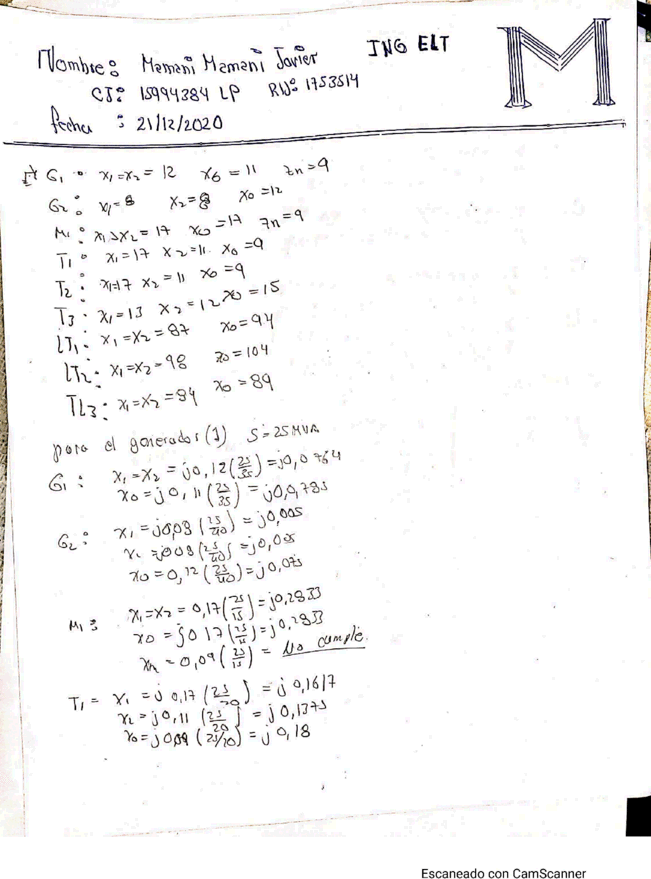 Nombre: Mamani Mamani Javier ING ELT
M
CI: 15994384 LP RU: 1753514
fecha : 21/12/2020
G1 : x1=x2= 12 x0 = 11 zn=9
G2 : x1=8 x2=8 x0=12
M1 : x1=x2=17 x0=17 zn=9
T1 : x1=17 x2=11 x0=9
T2 : x1=17 x2=11 x0=9
T3 : x1=13 x2=12 x0=15
LT1 : x1=x2=87 x0=94
LT2 : x1=x2=98 x0=104
TL3 : x1=x2=84 x0=89
para el generador (1) S=25MVA
G1 : x1=x2=j0,12(25/35)=j0,0764
x0=j0,11(25/35)=j0,0785
G2 : x1=j0,08(25/40)=j0,005
x2=j0,08(25/40)=j0,005
x0=0,12(25/40)=j0,075
M1 : x1=x2=0,17(25/15)=j0,2833
x0=j0,17(25/15)=j0,2833
xn=0,09(25/15)= No cumple.
T1 = x1=j0,17(25/20)=j0,1617
x2=j0,11(25/20)=j0,1375
x0=j0,09(25/20)=j0,18
Escaneado con CamScanner